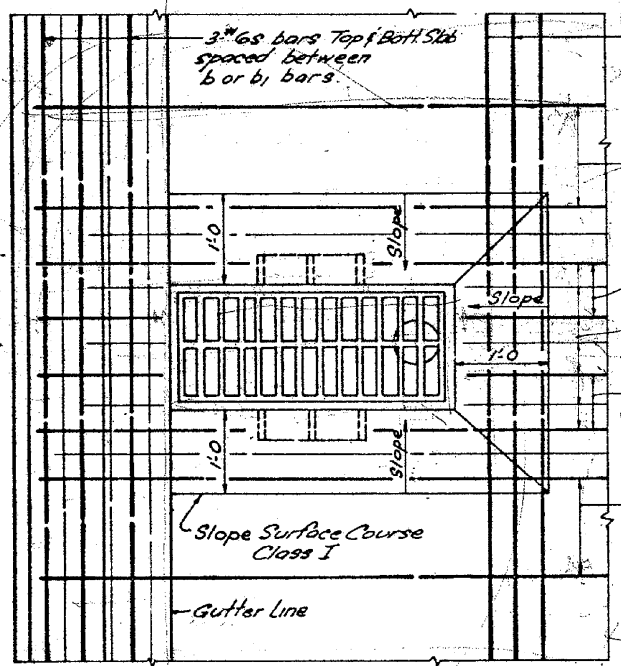 3-#6s bars Top & Bott. Slab
spaced between
b or b, bars.
1'-0
Slope
Slope
1'-0
1'-0
Slope
Slope Surface Course
Class I
Gutter Line